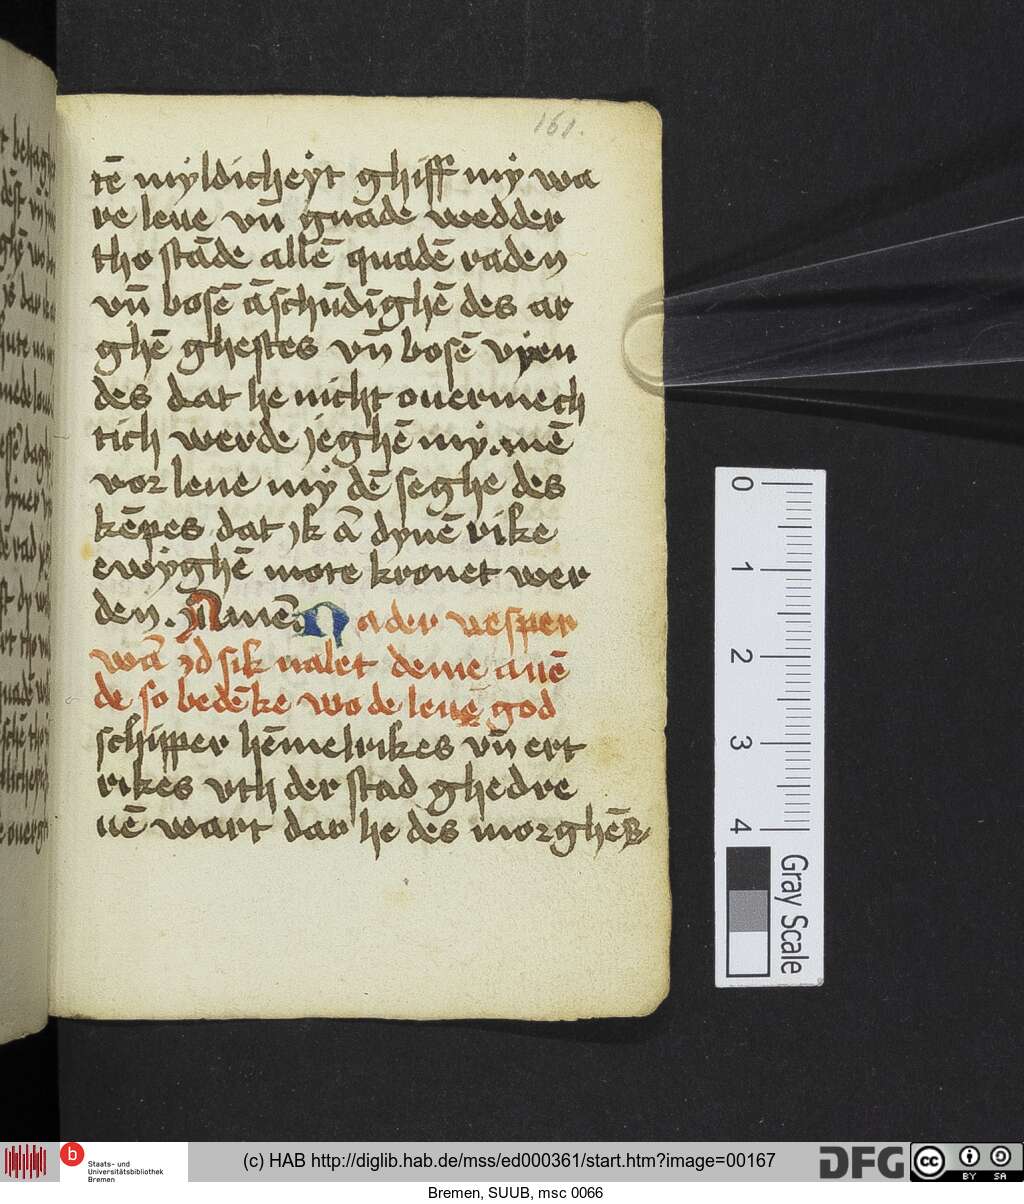 161.
tē myldicheyt ghiff my wa
re leue vn̄ gnade wedder
tho stāde allē quadē raden
vn̄ bosē āschūdīghē des ar
ghē ghestes vn̄ bosē vyen
des dat he nicht ouermech
tich werde jeghē my. mē
vor leue my dē seghe des
kēpes dat ik ā dynē rike
ewyghē mote kronet wer
den. Amē. Na der vesper
wā id sik nalet deme auē
de so bedēke wo de leuē god
schipper hēmelrikes vn̄ ert
rikes vth der stad ghedre
uē wart dar he des morghēs
0
1
2
3
4
Gray Scale
b
Staats- und
Universitätsbibliothek
Bremen
(c) HAB http://diglib.hab.de/mss/ed000361/start.htm?image=00167
DFG
cc BY SA
Bremen, SUUB, msc 0066